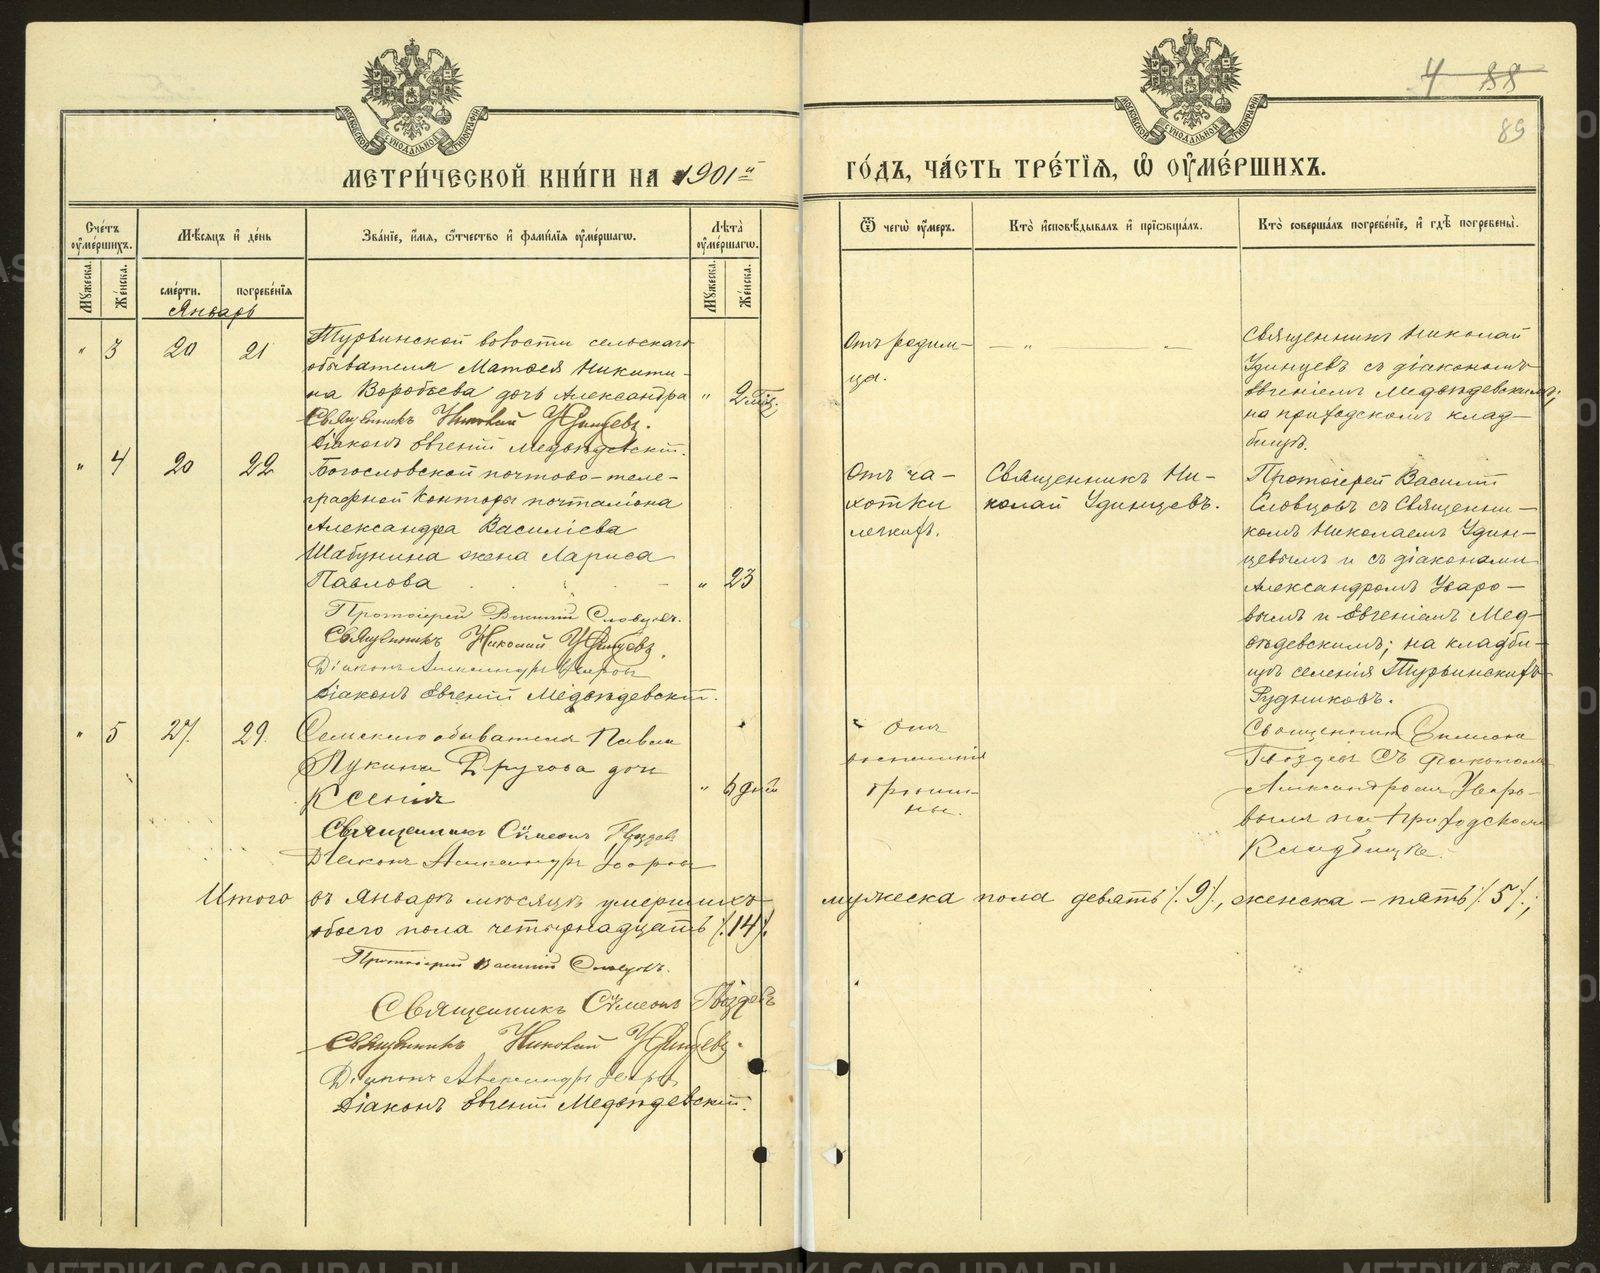 4 88
89
МОСКОВСКОЙ СѴНОДАЛЬНОЙ ТИПОГРАФІИ
МОСКОВСКОЙ СѴНОДАЛЬНОЙ ТИПОГРАФІИ
МЕТРИ́ЧЕСКОЙ КНИ́ГИ НА 1901й ГО́ДЪ, ЧА́СТЬ ТРЕ́ТІѦ, Ѡ҆ ОУ҆МЕ́РШИХЪ.
Сче́тъ оу҆ме́ршихъ.
Мѣ́сяцъ и҆ де́нь
Зва́нїе, и҆́мя, ѻ҆́тчество и҆ фами́лїя оу҆ме́ршагѡ.
Лѣ́та оу҆ме́ршагѡ.
Ѿ чегѡ̀ оу҆́меръ.
Кто̀ и҆сповѣ́дывалъ и҆ прїѡбща́лъ.
Кто̀ соверша́лъ погребе́нїе, и҆ гдѣ̀ погребены̀.
Мꙋ́жеска.
Же́нска.
сме́рти.
погребе́нїя
Мꙋ́жеска.
Же́нска.
Январь
" 3 20 21
Турьинской волости сельскаго
обывателя Матѳея Никити-
на Воробьева дочь Александра " 2 мѣс.
Священникъ Николай Удинцевъ.
Діаконъ Евгеній Медвѣдевскій.
Отъ родим-
ца.
— " — " —
Священникъ Николай
Удинцевъ съ діакономъ
Евгеніемъ Медвѣдевскимъ;
на приходскомъ клад-
бищѣ.
" 4 20 22
Богословской почтово-теле-
графной конторы почталіона
Александра Василіева
Шабунина жена Лариса
Павлова " 23
Протоіерей Василій Словцовъ.
Священникъ Николай Удинцевъ.
Діаконъ Александръ Уваровъ
Діаконъ Евгеній Медвѣдевскій.
Отъ ча-
хотки
легкихъ.
Священникъ Ни-
колай Удинцевъ.
Протоіерей Василій
Словцовъ съ Священни-
комъ Николаемъ Удин-
цевымъ и съ діаконами
Александромъ Уваро-
вымъ и Евгеніемъ Мед-
вѣдевскимъ; на кладби-
щѣ селенія Турьинскихъ
Рудниковъ.
" 5 27. 29.
Сельскаго обывателя Павла
Лукина Другова дочь
Ксенія " 6 дней
Священникъ Сѵмеонъ Гвоздевъ
Діаконъ Александръ Уваровъ
Отъ
воспаленія
брюши-
ны.
Священникъ Симеонъ
Гвоздевъ съ діакономъ
Александромъ Уваро-
вымъ на приходскомъ
Кладбищѣ.
Итого въ Январѣ мѣсяцѣ умершихъ мужеска пола девять /.9/., женска – пять /.5/.;
обоего пола четырнадцать /.14/.
Протоіерей Василій Словцовъ.
Священникъ Сѵмеонъ Гвоздевъ
Священникъ Николай Удинцевъ.
Діаконъ Александръ Уваровъ
Діаконъ Евгеній Медвѣдевскій.
METRIKI.GASO-URAL.RU